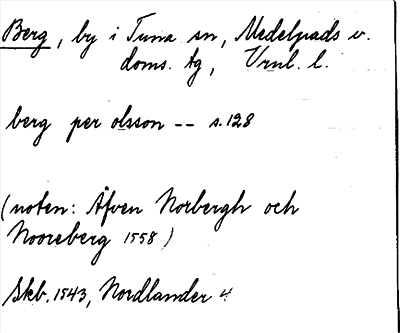 Berg, by i Tuna sn, Medelpads v.
doms. tg, Vrnl. l.
berg per olsson -- s. 128
(noten: Äfven Norbergh och
Nooreberg 1558)
Skb. 1543, Nordlander 4